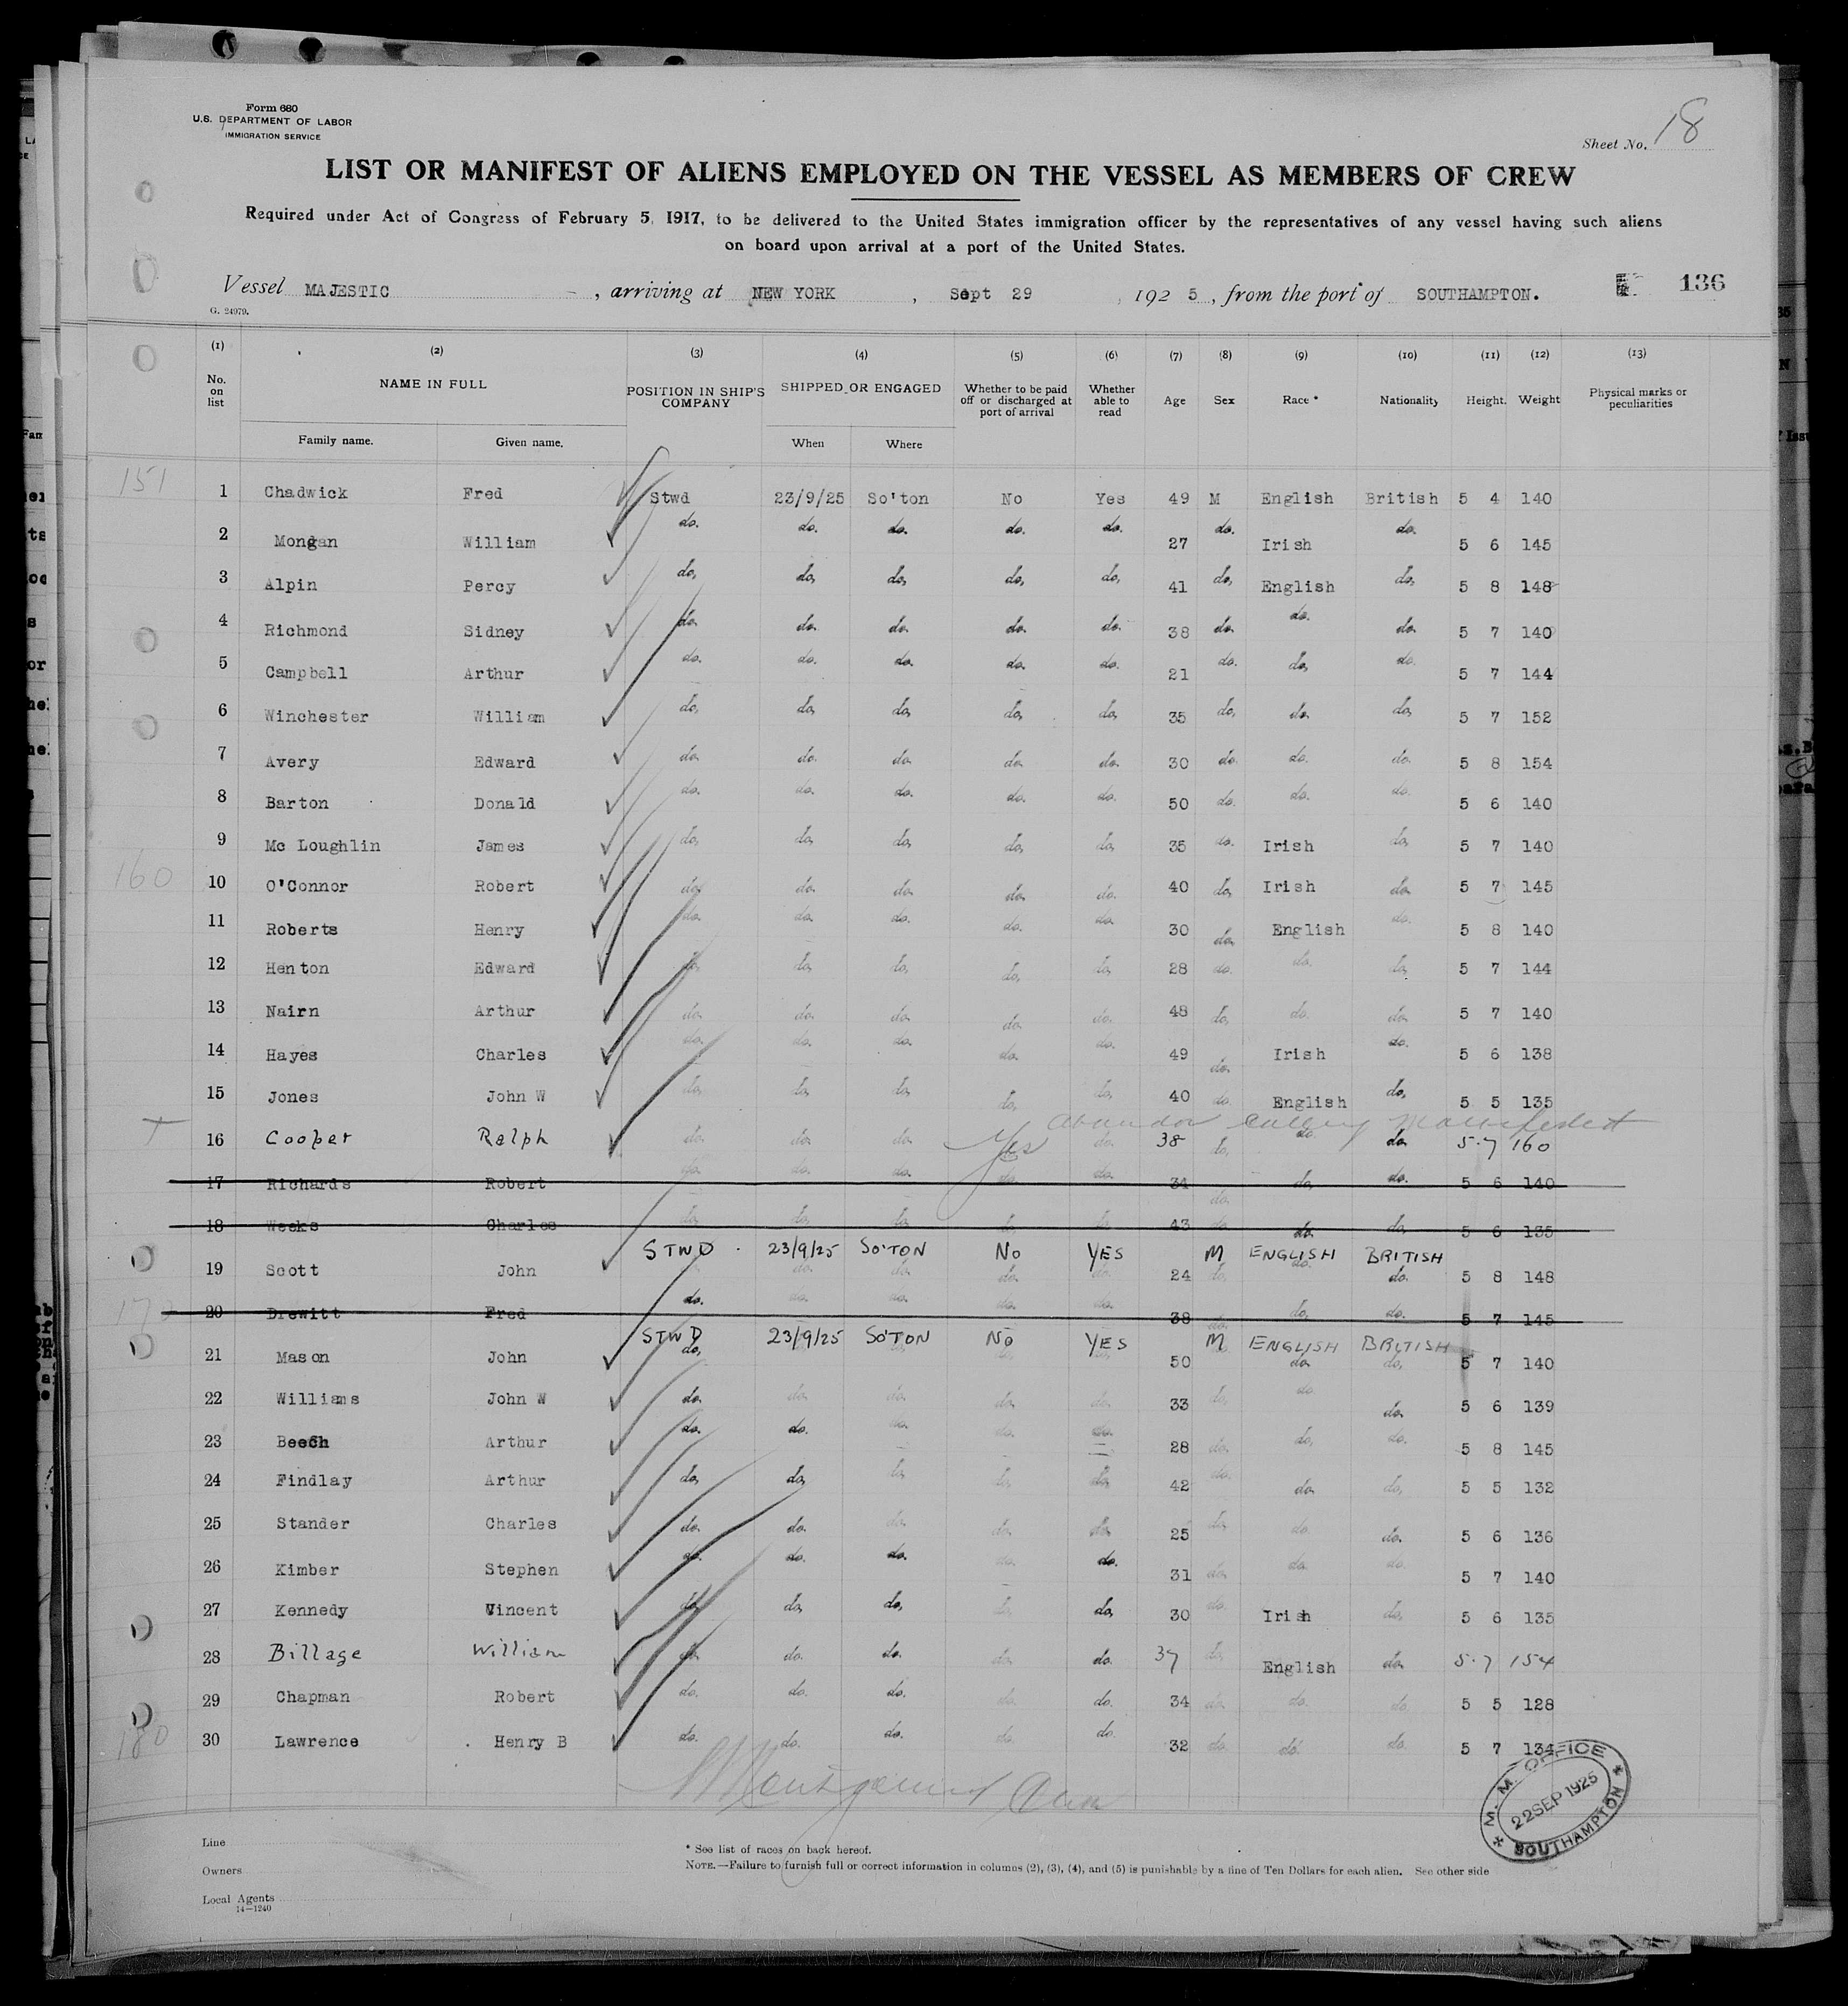 Form 680
U.S. DEPARTMENT OF LABOR
IMMIGRATION SERVICE
Sheet No. 18
LIST OR MANIFEST OF ALIENS EMPLOYED ON THE VESSEL AS MEMBERS OF CREW
Required under Act of Congress of February 5, 1917, to be delivered to the United States immigration officer by the representatives of any vessel having such aliens
on board upon arrival at a port of the United States.
Vessel MAJESTIC , arriving at NEW YORK , Sept 29 , 192 5 , from the port of SOUTHAMPTON. 136
G. 24979.
(1) (2) (3) (4) (5) (6) (7) (8) (9) (10) (11) (12) (13)
No. on list NAME IN FULL POSITION IN SHIP'S COMPANY SHIPPED OR ENGAGED Whether to be paid off or discharged at port of arrival Whether able to read Age Sex Race * Nationality Height. Weight Physical marks or peculiarities
Family name. Given name. When Where
151 1 Chadwick Fred Stwd 23/9/25 So'ton No Yes 49 M English British 5 4 140
2 Mongan William do. do. do. do. do. 27 do. Irish do. 5 6 145
3 Alpin Percy do. do. do. do. do. 41 do. English do. 5 8 148
4 Richmond Sidney do. do. do. do. do. 38 do. do. do. 5 7 140
5 Campbell Arthur do. do. do. do. do. 21 do. do. do. 5 7 144
6 Winchester William do. do. do. do. do. 35 do. do. do. 5 7 152
7 Avery Edward do. do. do. do. do. 30 do. do. do. 5 8 154
8 Barton Donald do. do. do. do. do. 50 do. do. do. 5 6 140
9 Mc Loughlin James do. do. do. do. do. 35 do. Irish do. 5 7 140
160 10 O'Connor Robert do. do. do. do. do. 40 do. Irish do. 5 7 145
11 Roberts Henry do. do. do. do. do. 30 do. English do. 5 8 140
12 Henton Edward do. do. do. do. do. 28 do. do. do. 5 7 144
13 Nairn Arthur do. do. do. do. do. 48 do. do. do. 5 7 140
14 Hayes Charles do. do. do. do. do. 49 do. Irish do. 5 6 138
15 Jones John W do. do. do. do. do. 40 do. English do. 5 5 135
Abandon calling Manifested
16 Cooper Ralph do. do. do. Yes do. 38 do. do. do. 5.7 160
17 Richards Robert do. do. do. do. do. 34 do. do. do. 5 6 140
18 Weeks Charles do. do. do. do. do. 43 do. do. do. 5 6 135
STWD. 23/9/25 SO'TON No YES M ENGLISH BRITISH
19 Scott John do. do. do. do. 24 do. do. do. 5 8 148
20 Drewitt Fred do. do. do. do. do. 38 do. do. do. 5 7 145
STWD 23/9/25 SO'TON No YES M ENGLISH BRITISH
21 Mason John do. 50 do. do. 5 7 140
22 Williams John W do. do. do. do. do. 33 do. do. do. 5 6 139
23 Beech Arthur do. do. do. do. do. 28 do. do. do. 5 8 145
24 Findlay Arthur do. do. do. do. do. 42 do. do. do. 5 5 132
25 Stander Charles do. do. do. do. do. 25 do. do. do. 5 6 136
26 Kimber Stephen do. do. do. do. do. 31 do. do. do. 5 7 140
27 Kennedy Vincent do. do. do. do. do. 30 do. Irish do. 5 6 135
28 Billage William do. do. do. do. do. 37 do. English do. 5.7 154
29 Chapman Robert do. do. do. do. do. 34 do. do. do. 5 5 128
180 30 Lawrence Henry B do. do. do. do. do. 32 do. do. do. 5 7 134
M. M. OFFICE
22 SEP 1925
SOUTHAMPTON
Line
Owners
Local Agents
14—1240
* See list of races on back hereof.
NOTE.—Failure to furnish full or correct information in columns (2), (3), (4), and (5) is punishable by a fine of Ten Dollars for each alien. See other side